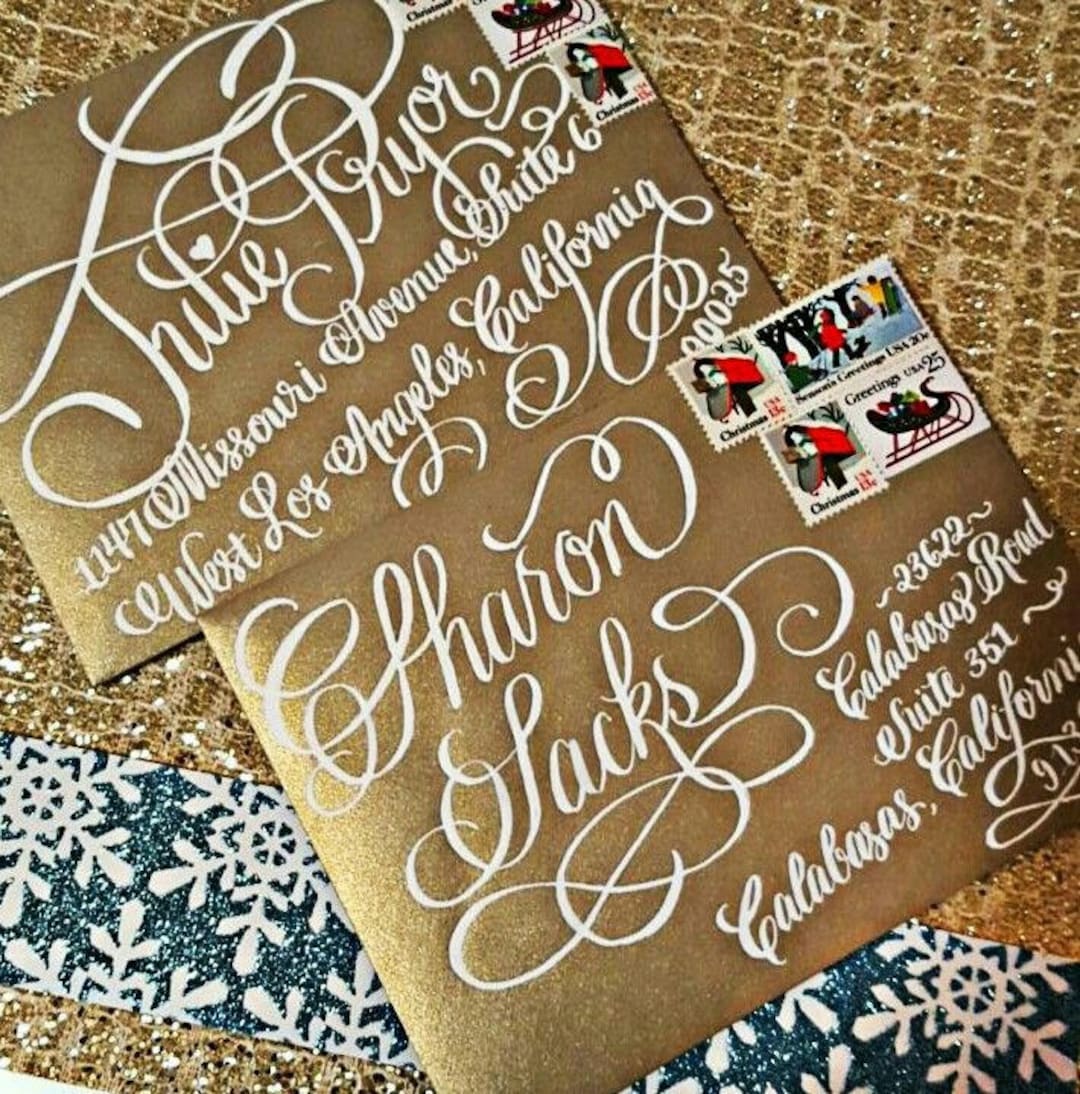 Christmas
Christmas
USA
13c
Julie Pryor
11147 Missouri Avenue, Suite 6
West Los Angeles, California
90025
Season's Greetings USA 20c
Christmas
USA
13c
Greetings USA 25
Christmas
USA
13c
Sharon
Sacks
~23622~
Calabasas Road
Suite 351 ~
Calabasas, Californi
913